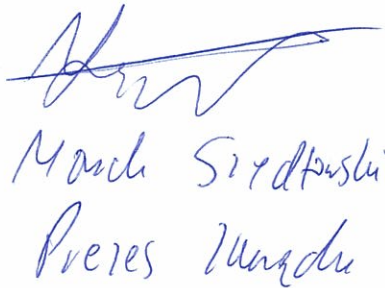 Marek Szydłowski
Prezes Zarządu